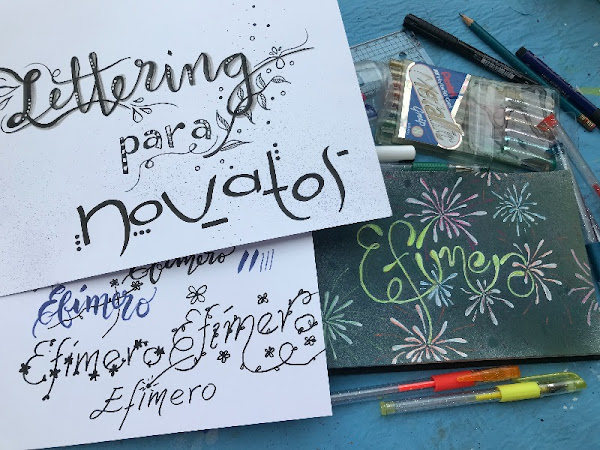 Lettering
para
novatos
Efímero
Efímero
Efímero Efímero
Efímero
Efímero